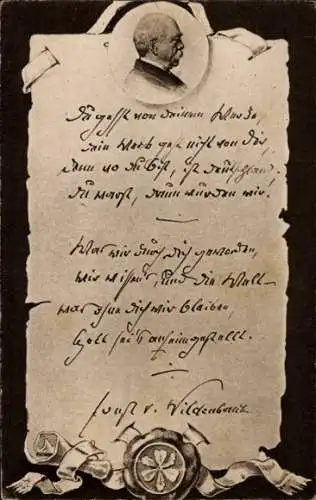 Du gehst von deinem Werke,
dein Werk geht nicht von dir,
denn wo du bist, ist Deutschland.
Du warst, drum wurden wir.
Was wir durch dich geworden,
wir wissen's und die Welt –
was ohne dich wir bleiben,
Gott sei's anheimgestellt.
Ernst v. Wildenbruch